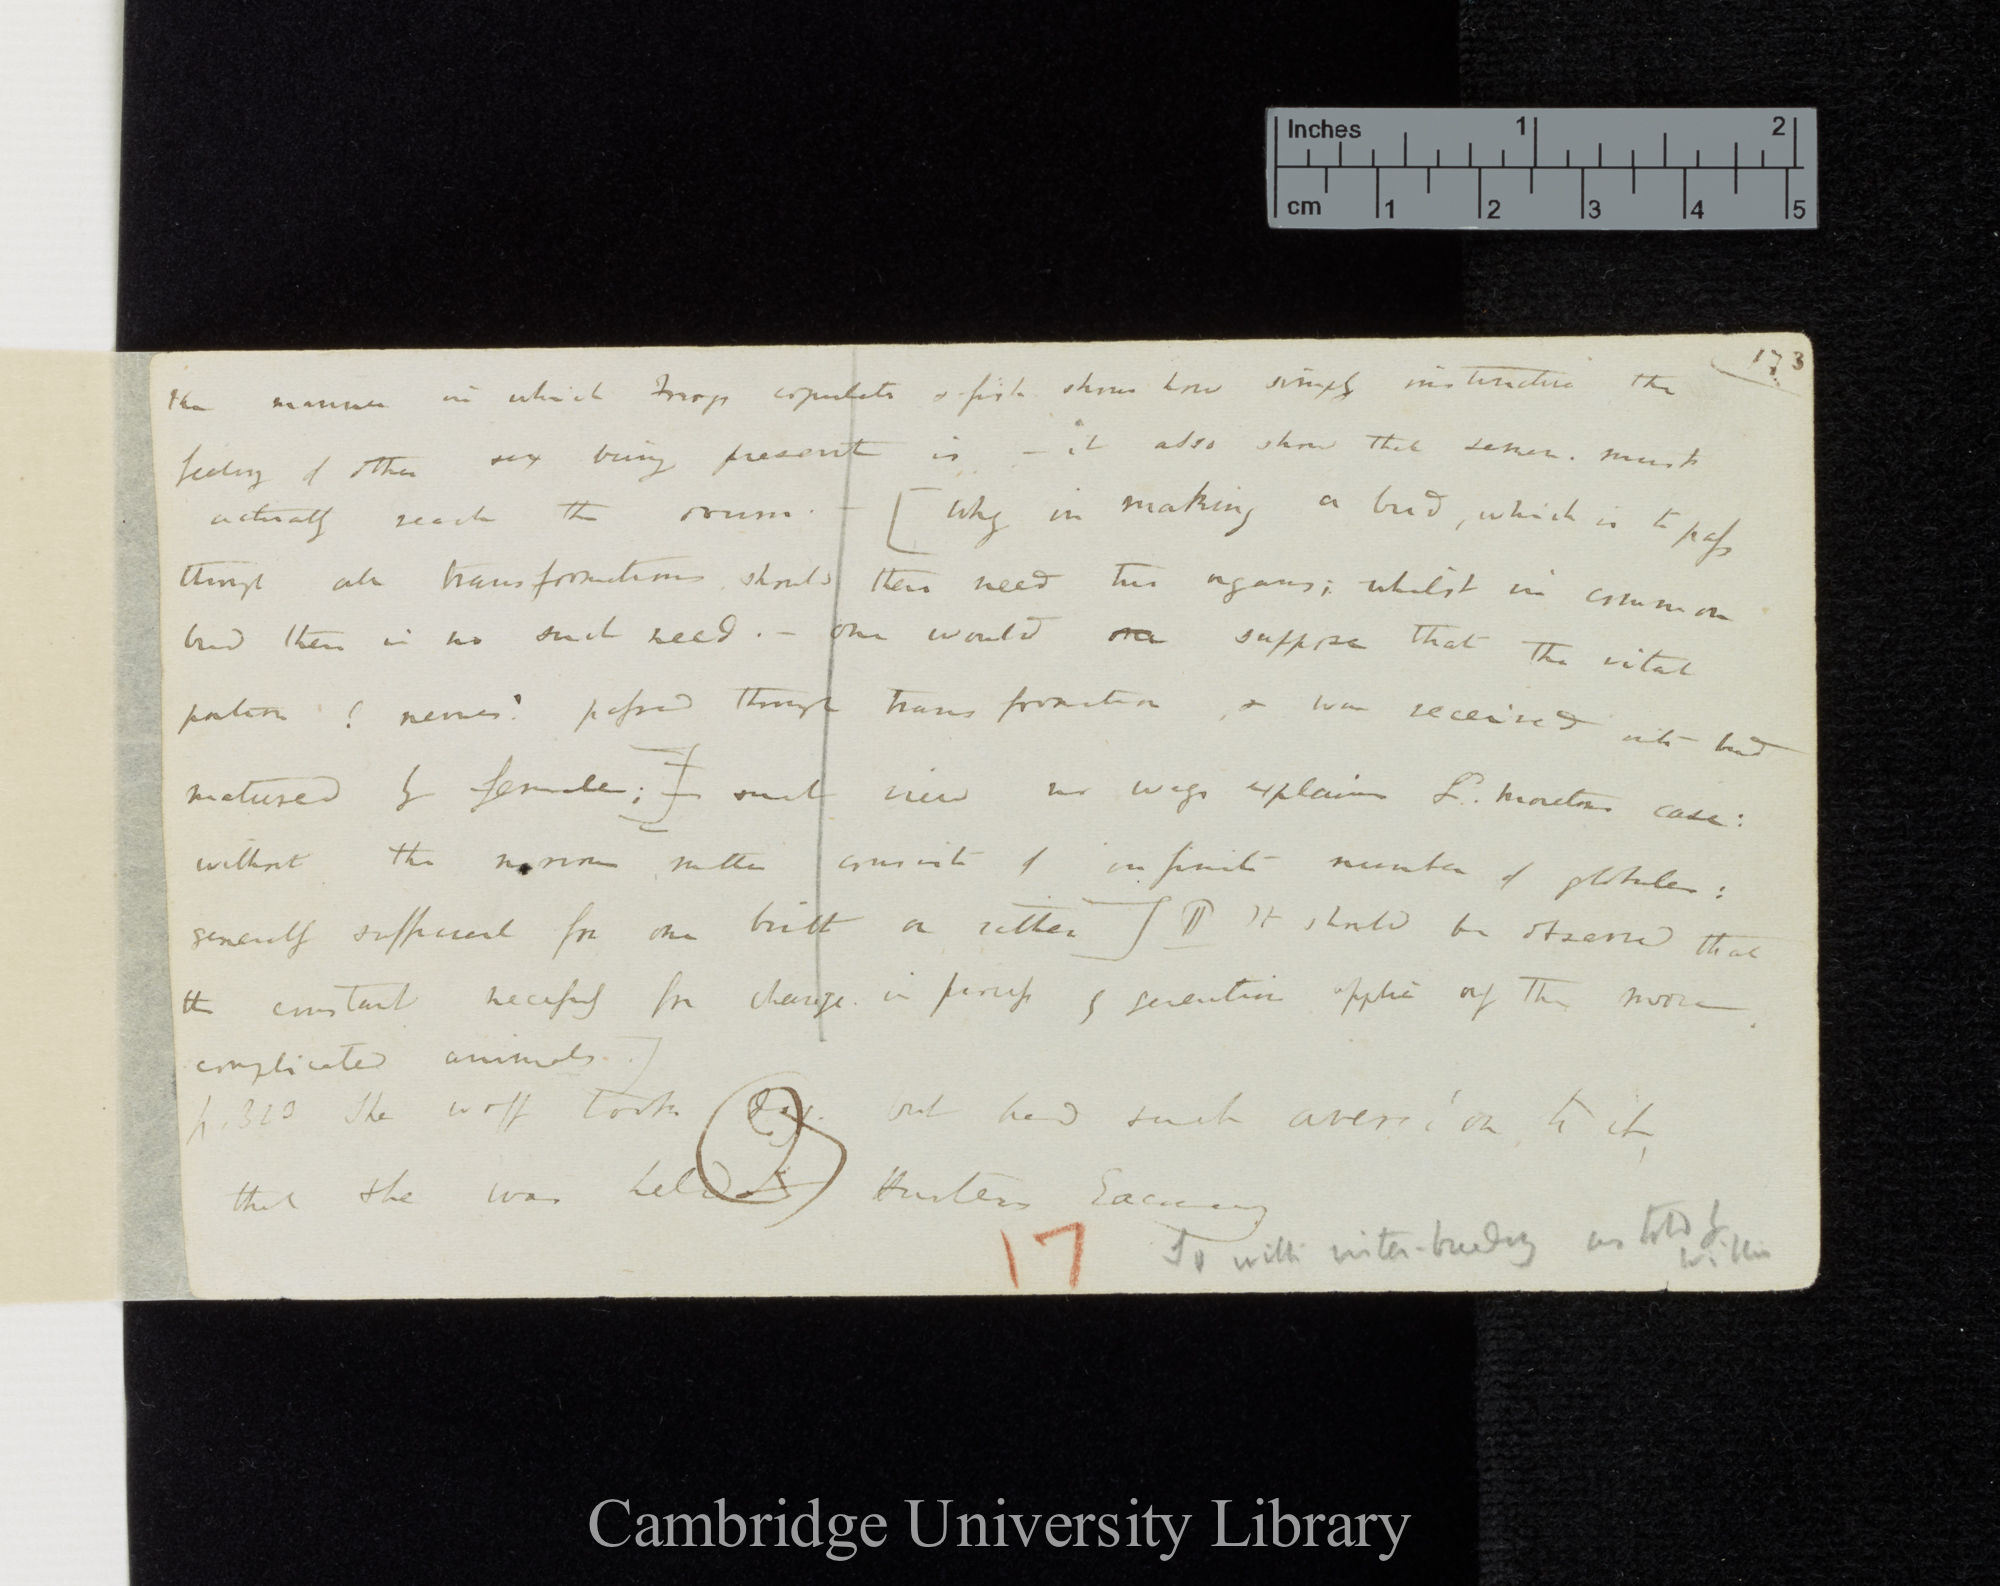 173
the manner in which Frogs copulate & fish shows how simply instinctive the
feeling of other sex being present is. — it also show that semen. must
actually reach the ovum. — [ Why in making a bud, which is to pass
through all transformations should there need two organs; whilst in common
bud there is no such need. — one would suppose that the vital
portion ? nerves? passed through transformation, & was received into bud
matured by female; ] — such view no ways explains Ld. Moreton's case:
without the nervous matter consists of infinite number of globules:
generally sufficient for one birth or rather ] It should be observed that
the constant necessity for change. in process of generation applies only the more
complicated animals. ]
p. 323 She wolf took dog. but had such aversion to it,
that she was held. Hunters Economy
17
So with inter-breeding as told by
Willis
Inches 1 2
cm 1 2 3 4 5
Cambridge University Library